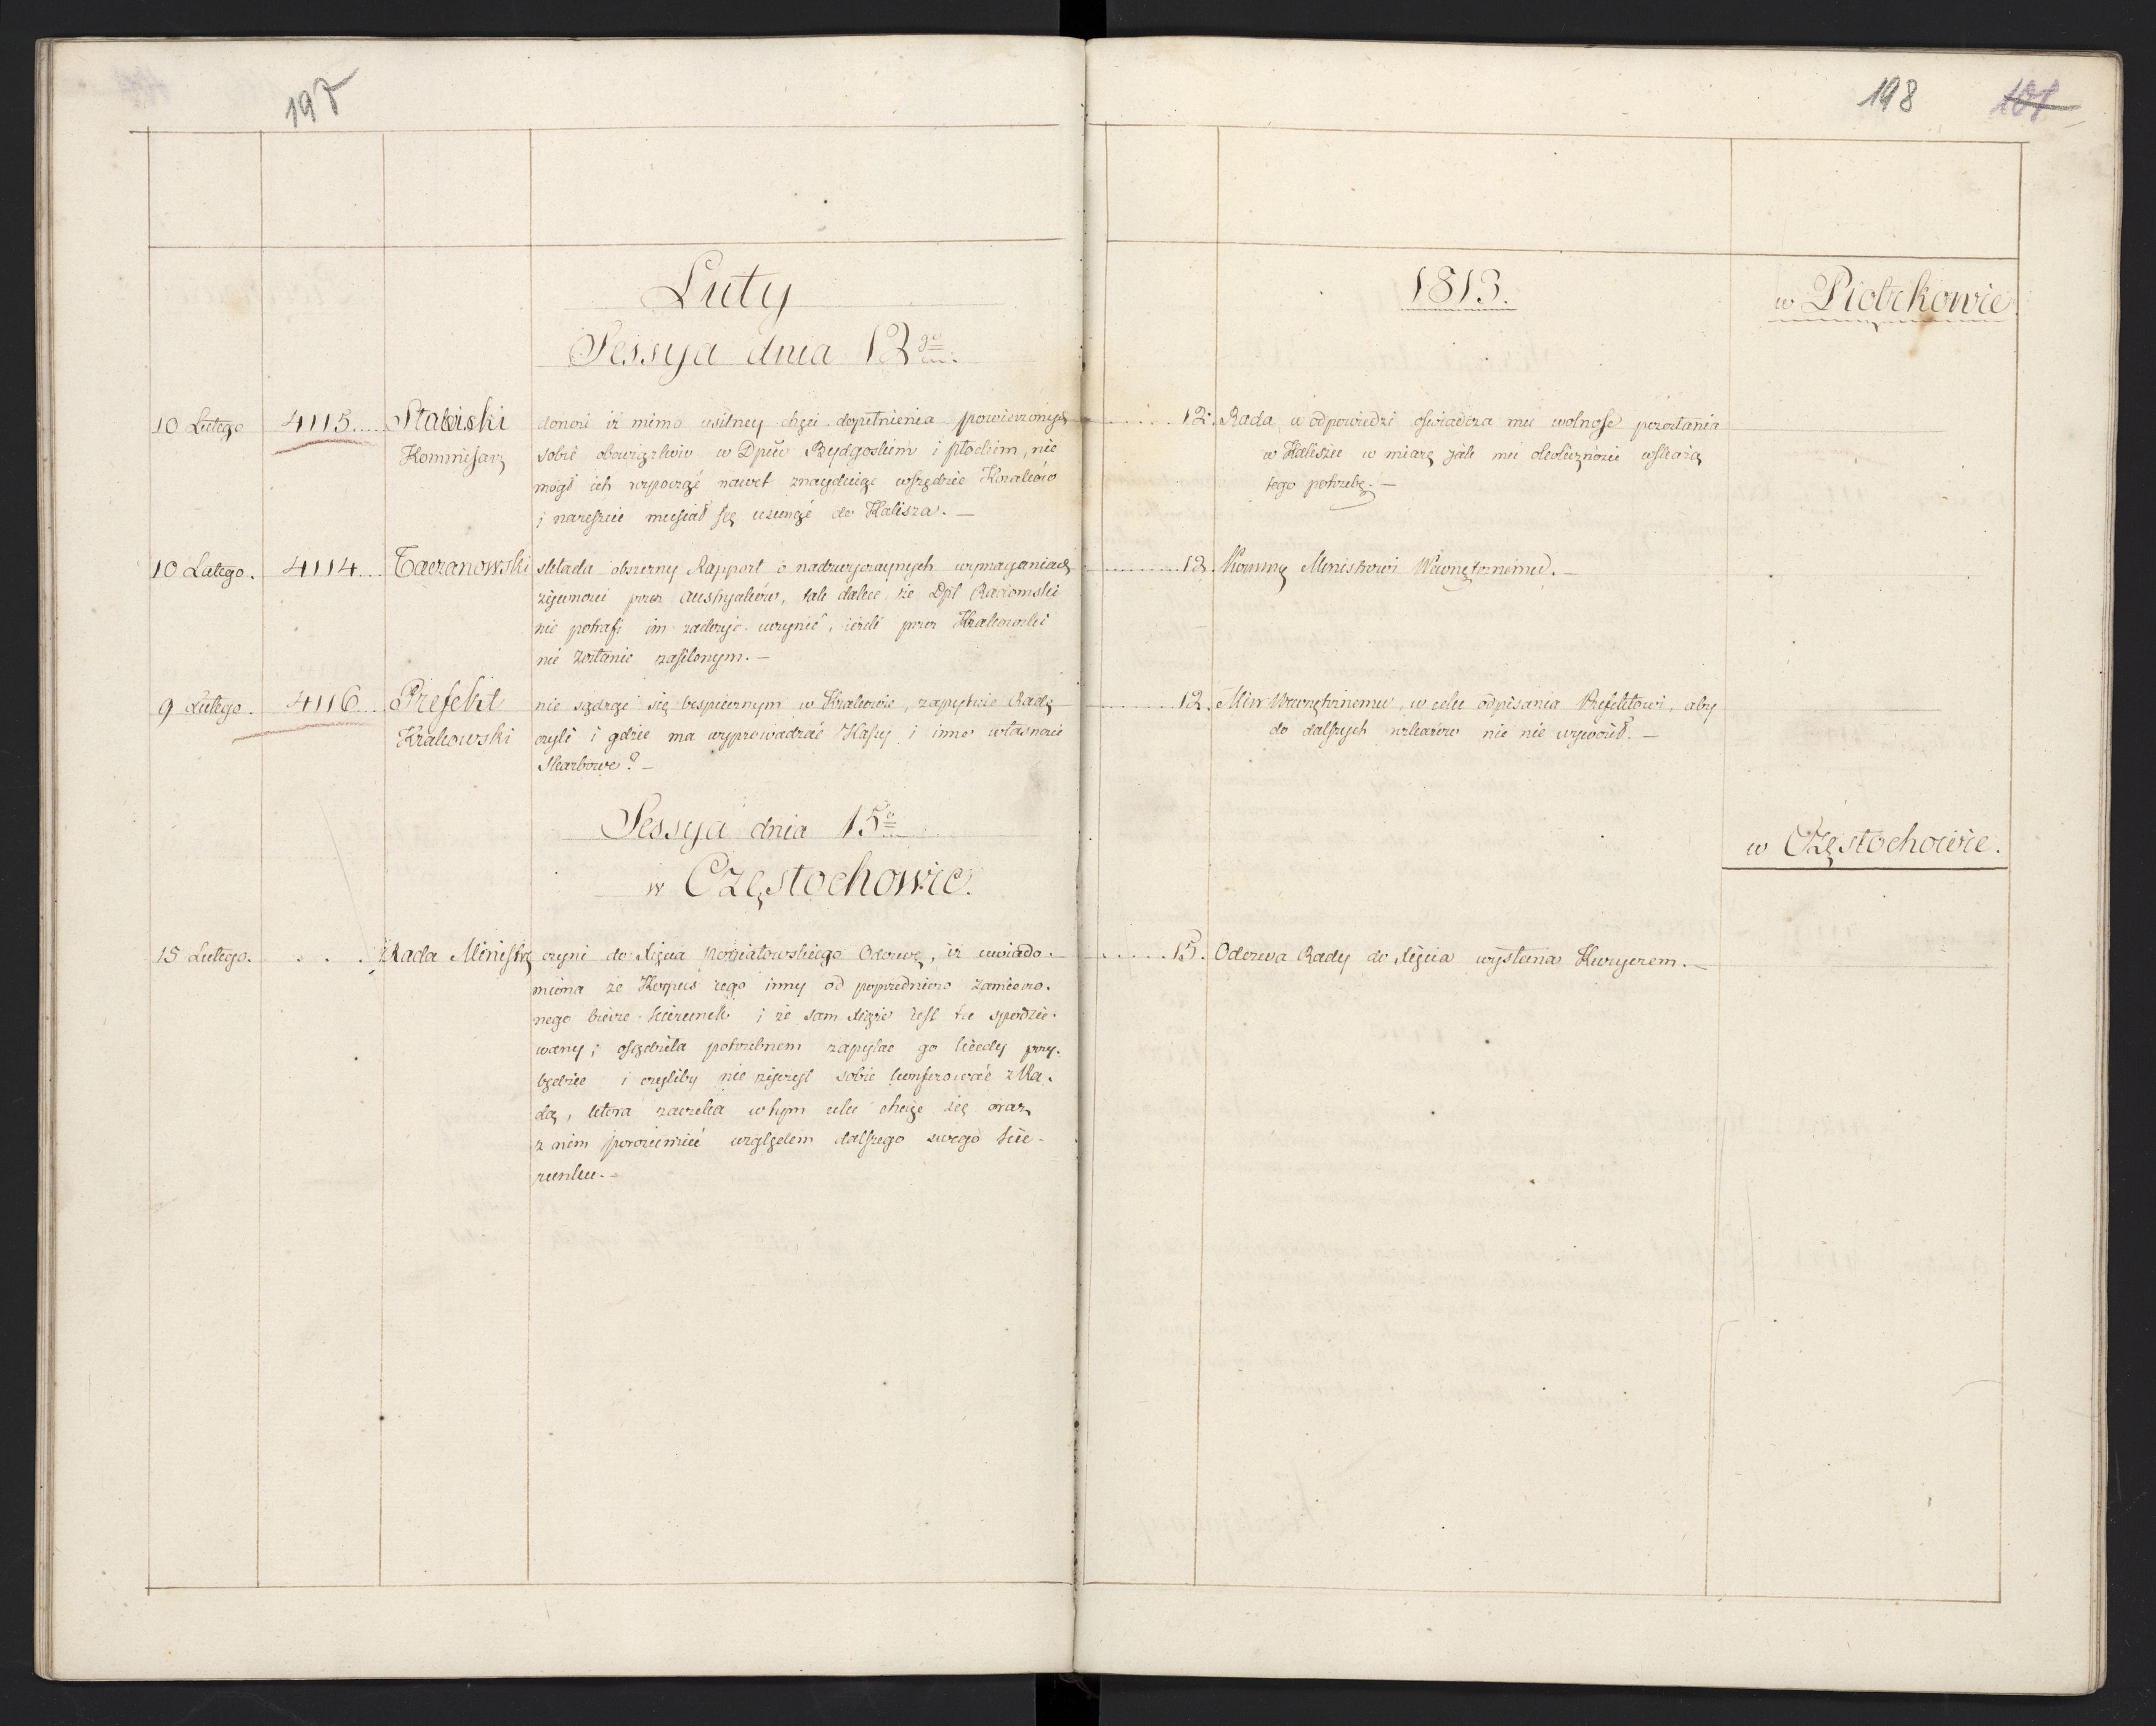 197
198 101
Luty
1813.
w Piotrkowie.
Sessya dnia 12go
10 Lutego 4115. Stawiski donosi iż mimo usilney chęci dopełnienia powierzonych
Kommisarz sobie obowiązków w Dpcie Bydgoskim i Płockim, nie
mógł ich rozpocząć nawet znayduiąc wszędzie Kozaków
i nareszcie musiał się usunąć do Kalisza. —
12. Rada w odpowiedzi oświadcza mu wolność pozostania
w Kaliszu w miarę jak mu okoliczności wskażą
tego potrzebę. —
10 Lutego. 4114. Taczanowski składa obszerny Rapport o nadzwyczaynych wymaganiach
żywności przez Austryaków, tak dalece że Dpt Radomski
nie potrafi im zadosyć uczynić, ieżeli przez Krakowski
nie zostanie zasilonym. —
12. Komuny Ministrowi Wewnętrznemu. —
9 Lutego. 4116. Prefekt nie sądząc się bespiecznym w Krakowie, zapytuie Radę
Krakowski czyli i gdzie ma wyprowadzać Kassy i inne własności
Skarbowe? —
12. Min Wewnętrznemu, w celu odpisania Prefektowi, aby
do dalszych rozkazów nic nie wywoził. —
Sessya dnia 15o
w Częstochowie.
w Częstochowie.
15 Lutego. . . . Rada Ministrów czyni do Xięcia Poniatowskiego Odezwę, iż uwiado-
miona że Korpus iego inny od poprzednio zamierzo-
nego bierze kierunek i że sam Xiąże iest tu spodzie-
wany; osądziła potrzebnem zapytać go kiedy przy-
będzie i czyliby nie życzył sobie konferować z Ra-
dą, która zaczeka w tym celu chcąc się oraz
z nim porozumieć względem dalszego swego kie-
runku. —
15. Odezwa Rady do Xięcia wysłana Kuryerem. —